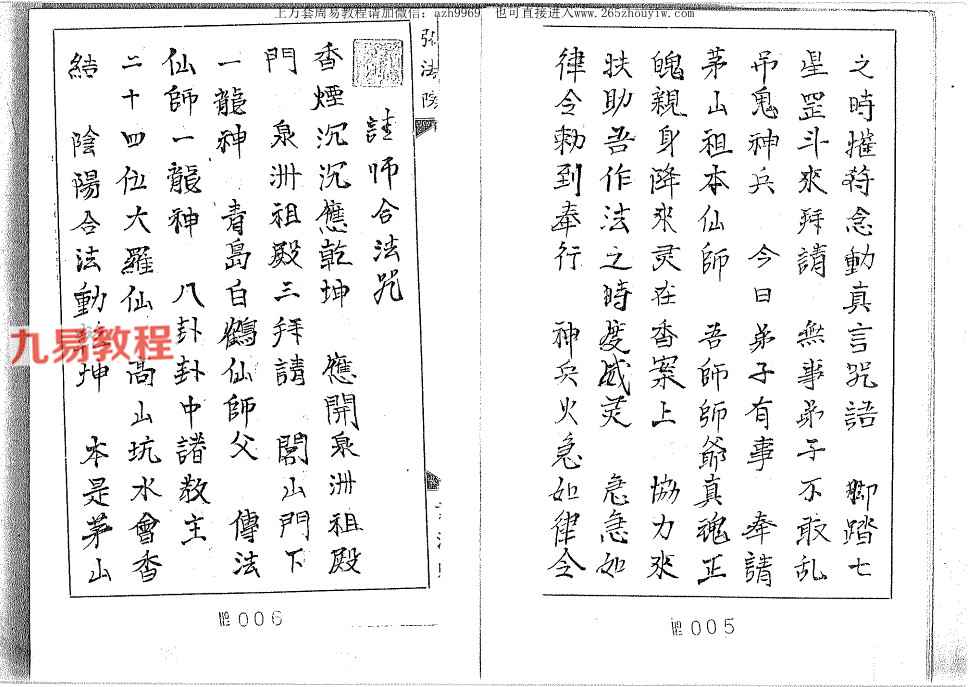 上万套周易教程请加微信：azh9969 也可直接进入www.265zhouyiw.com
之時 符念動真言咒語 腳踏七
星罡斗來拜請 無事弟子不敢乱
吊鬼神兵 今日弟子有事 奉請
茅山祖本仙師 吾師師爺真魂正
魄親身降來灵在香案上 協力來
扶助吾作法之時度威灵 急急如
律令勅到奉行 神兵火急如律令
005
師合法咒
香煙沉沉應乾坤 應開泉洲祖殿
門 泉洲祖殿三拜請 閭山門下
一龍神 青島白鶴仙師父 傳法
仙師一龍神 八卦卦中諸教主
二十四位大羅仙 高山坑水會香
結 陰陽合法動 坤 本是茅山
006
九易教程